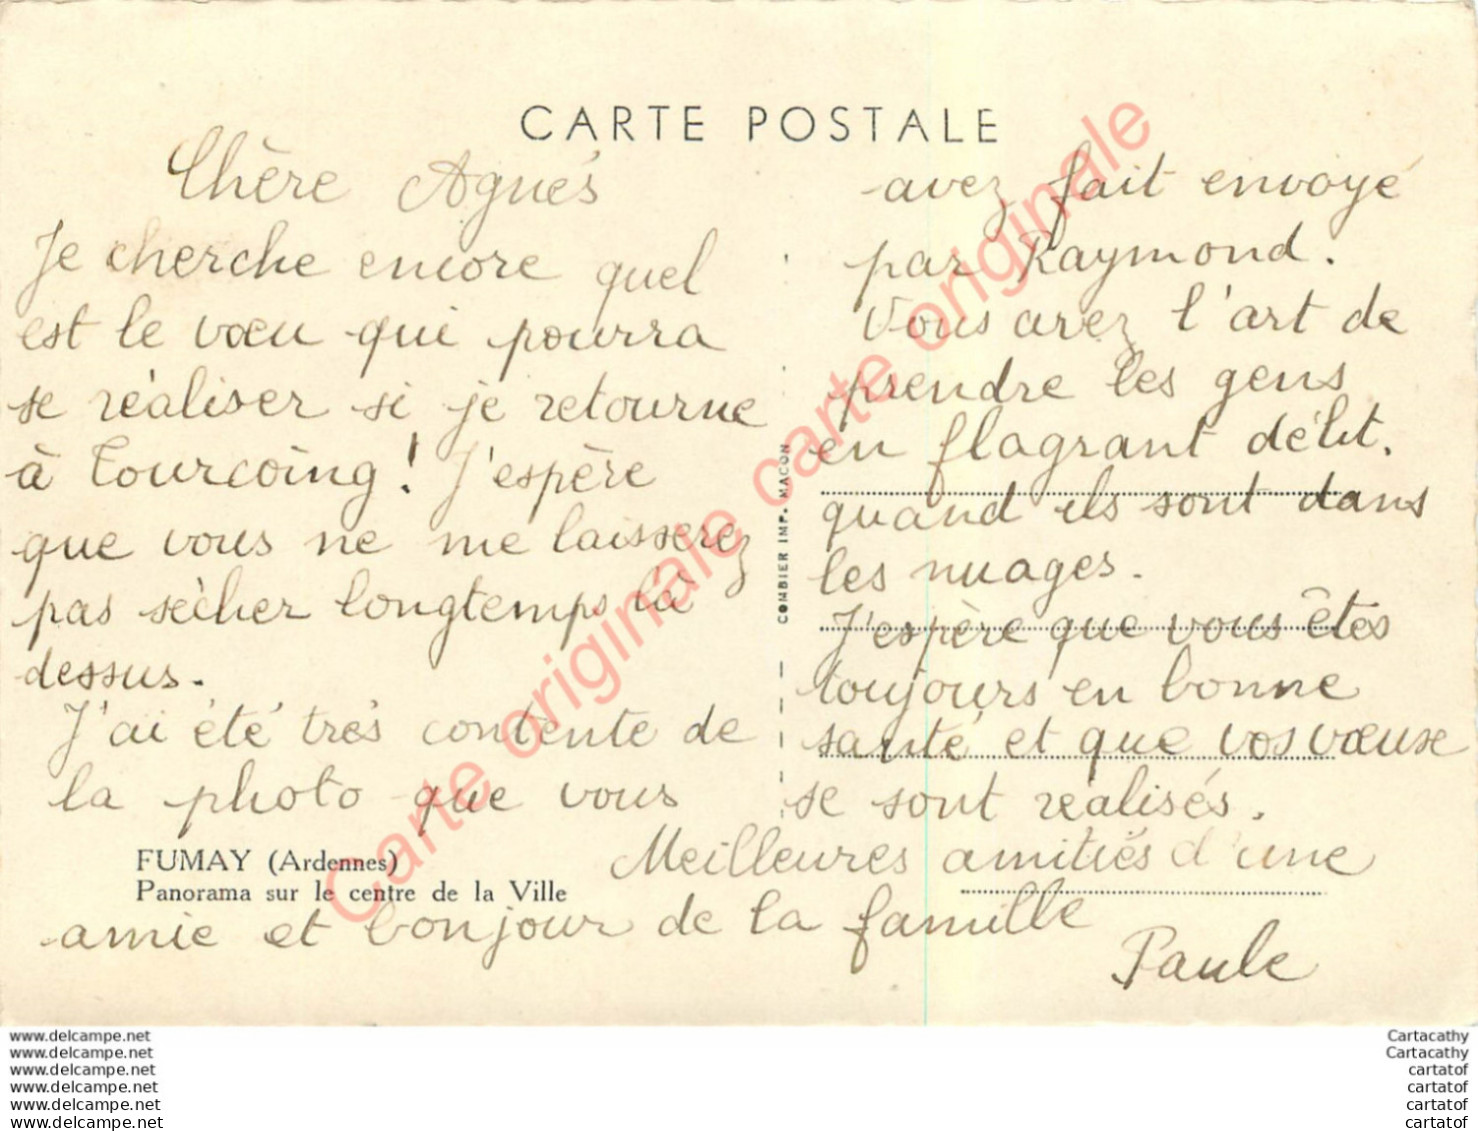 CARTE POSTALE
Chère Agnès
Je cherche encore quel
est le vœu qui pourra
se réaliser si je retourne
à Tourcoing! J'espère
que vous ne me laisserez
pas sècher longtemps là
dessus.
J'ai été très contente de
la photo que vous
avez fait envoyé
par Raymond.
Vous avez l'art de
prendre les gens
en flagrant délit.
quand ils sont dans
les nuages.
J'espère que vous êtes
toujours en bonne
santé et que vos vœuse
se sont réalisés.
Meilleures amitiés d'une
amie et bonjour de la famille
Paule
FUMAY (Ardennes)
Panorama sur le centre de la Ville
COMBIER IMP. MACON
Carte originale carte originale
www.delcampe.net
www.delcampe.net
www.delcampe.net
www.delcampe.net
www.delcampe.net
www.delcampe.net
Cartacathy
Cartacathy
cartatof
cartatof
cartatof
cartatof